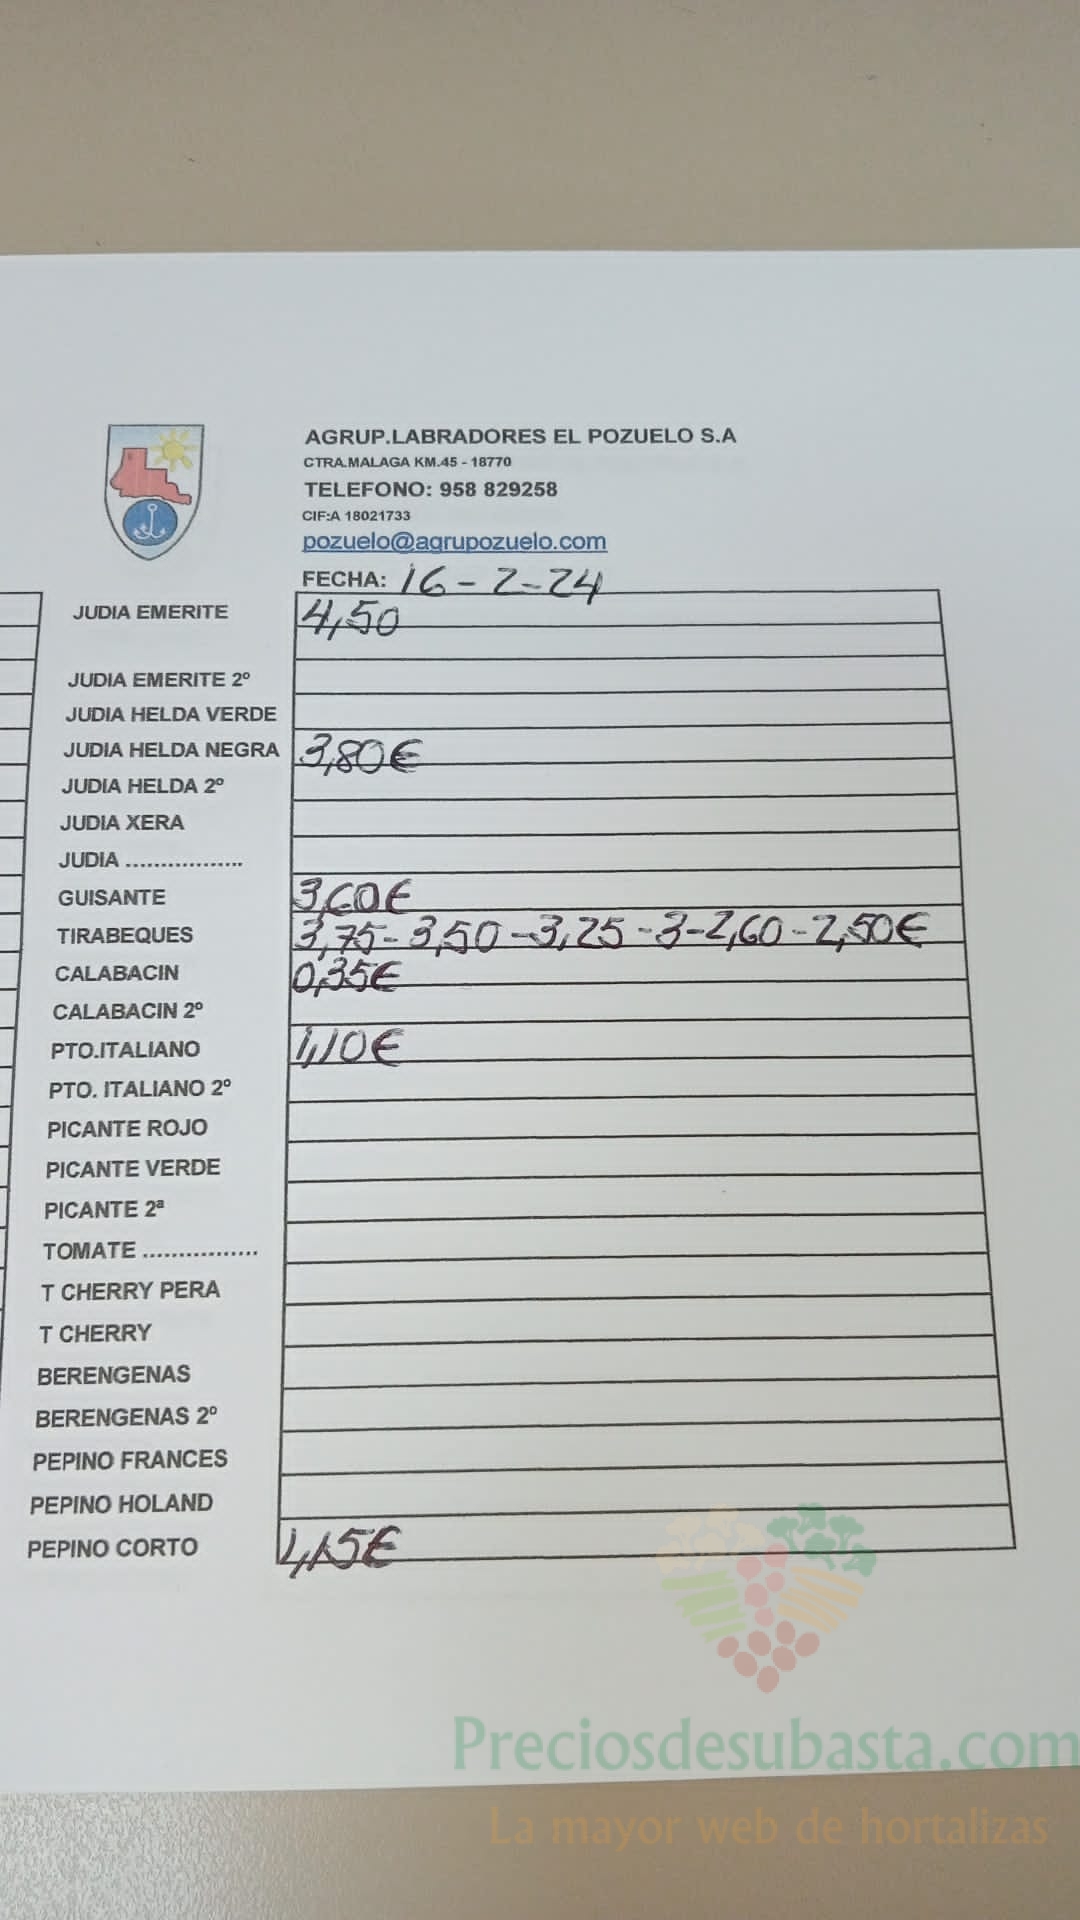 AGRUP.LABRADORES EL POZUELO S.A
CTRA.MALAGA KM.45 - 18770
TELEFONO: 958 829258
CIF:A 18021733
pozuelo@agrupozuelo.com
FECHA: 16-2-24
JUDIA EMERITE 4,50
JUDIA EMERITE 2º
JUDIA HELDA VERDE
JUDIA HELDA NEGRA 3,80€
JUDIA HELDA 2º
JUDIA XERA
JUDIA .................
GUISANTE 3,60€
TIRABEQUES 3,75-3,50-3,25-3-2,60-2,50€
CALABACIN 0,35€
CALABACIN 2º
PTO.ITALIANO 1,10€
PTO. ITALIANO 2º
PICANTE ROJO
PICANTE VERDE
PICANTE 2ª
TOMATE ................
T CHERRY PERA
T CHERRY
BERENGENAS
BERENGENAS 2º
PEPINO FRANCES
PEPINO HOLAND
PEPINO CORTO
Preciosdesubasta.com
La mayor web de hortalizas